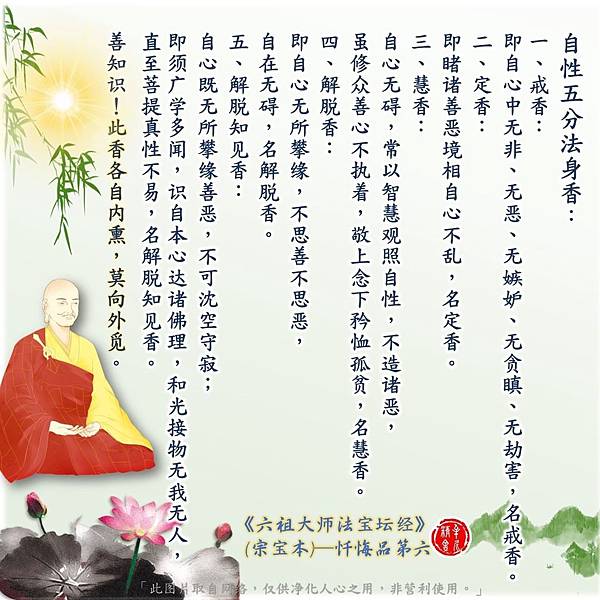 自性五分法身香：
一、戒香：
即自心中无非、无恶、无嫉妒、无贪瞋、无劫害，名戒香。
二、定香：
即睹诸善恶境相自心不乱，名定香。
三、慧香：
自心无碍，常以智慧观照自性，不造诸恶，
虽修众善心不执着，敬上念下矜恤孤贫，名慧香。
四、解脱香：
即自心无所攀缘，不思善不思恶，
自在无碍，名解脱香。
五、解脱知见香：
自心既无所攀缘善恶，不可沈空守寂；
即须广学多闻，识自本心达诸佛理，和光接物无我无人，
直至菩提真性不易，名解脱知见香。
善知识！此香各自内熏，莫向外觅。
《六祖大师法宝坛经》
(宗宝本)—忏悔品第六
「此图片取自网络，仅供净化人心之用，非营利使用。」